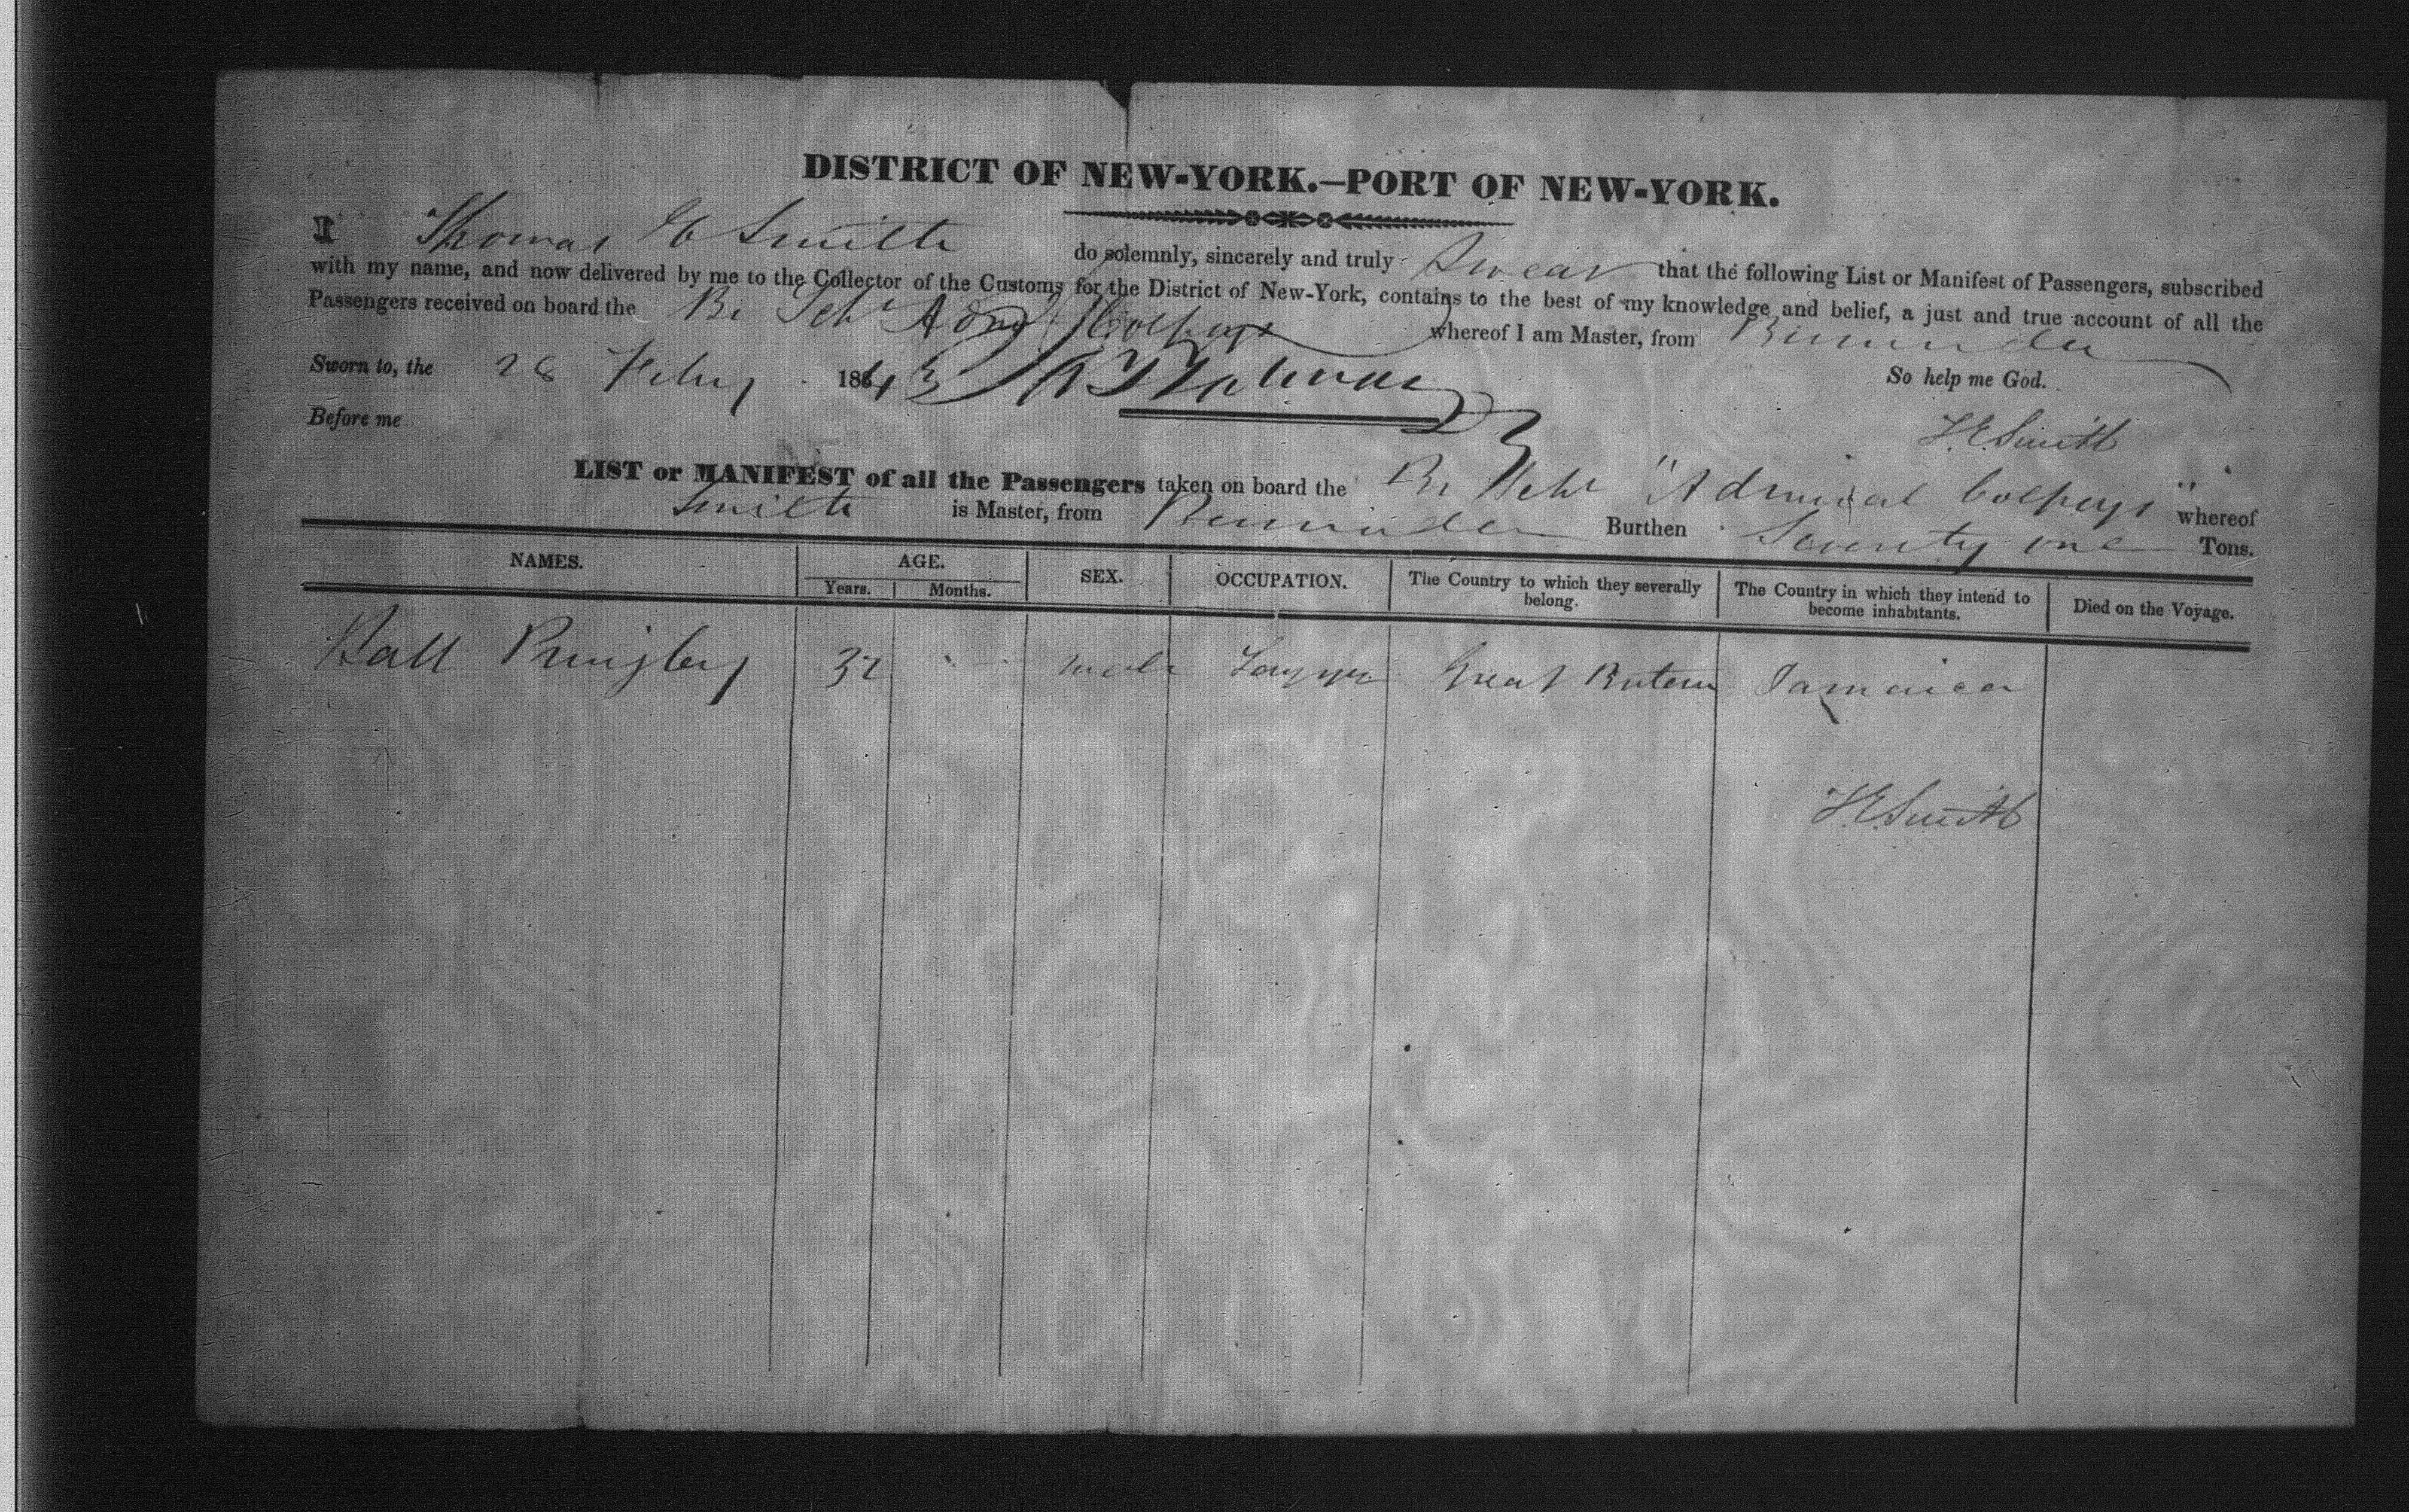 DISTRICT OF NEW-YORK.—PORT OF NEW-YORK.
I Thomas E Smith do solemnly, sincerely and truly Swear that the following List or Manifest of Passengers, subscribed
with my name, and now delivered by me to the Collector of the Customs for the District of New-York, contains to the best of my knowledge and belief, a just and true account of all the
Passengers received on board the Br Schr Adml Colpoys whereof I am Master, from Bermuda
Sworn to, the 28 Feby 1843 So help me God.
Before me T.E. Smith
LIST or MANIFEST of all the Passengers taken on board the Br Schr "Admiral Colpoys" whereof
Smith is Master, from Bermuda Burthen Seventy one Tons.
NAMES. AGE. SEX. OCCUPATION. The Country to which they severally belong. The Country in which they intend to become inhabitants. Died on the Voyage.
Years. Months.
Hall Pringley 32 male Great Britain Jamaica
T.E. Smith